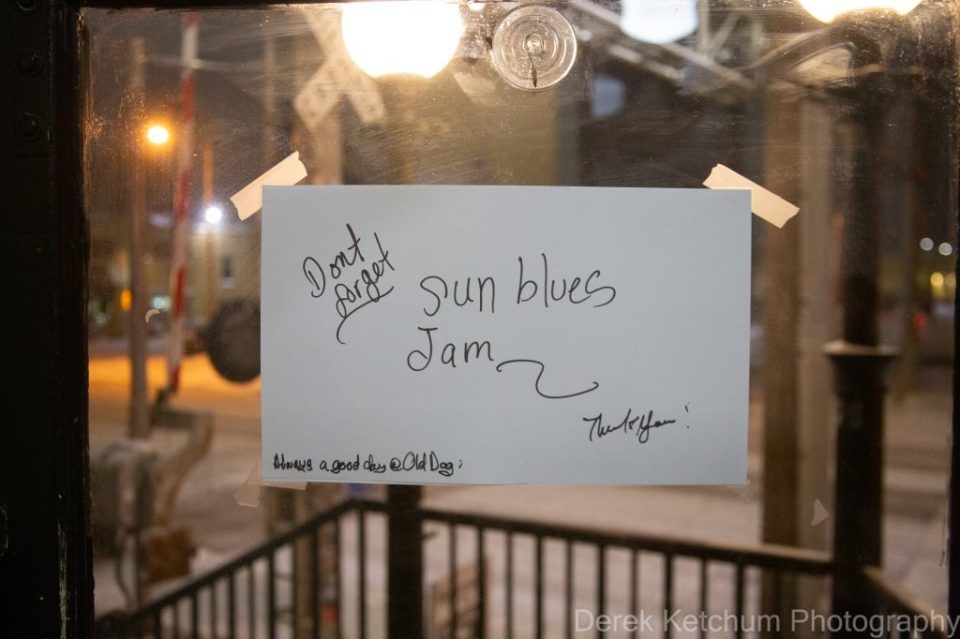 Dont
forget
Sun blues
Jam
Thank you!
Always a good day @ Old Dog!
Derek Ketchum Photography